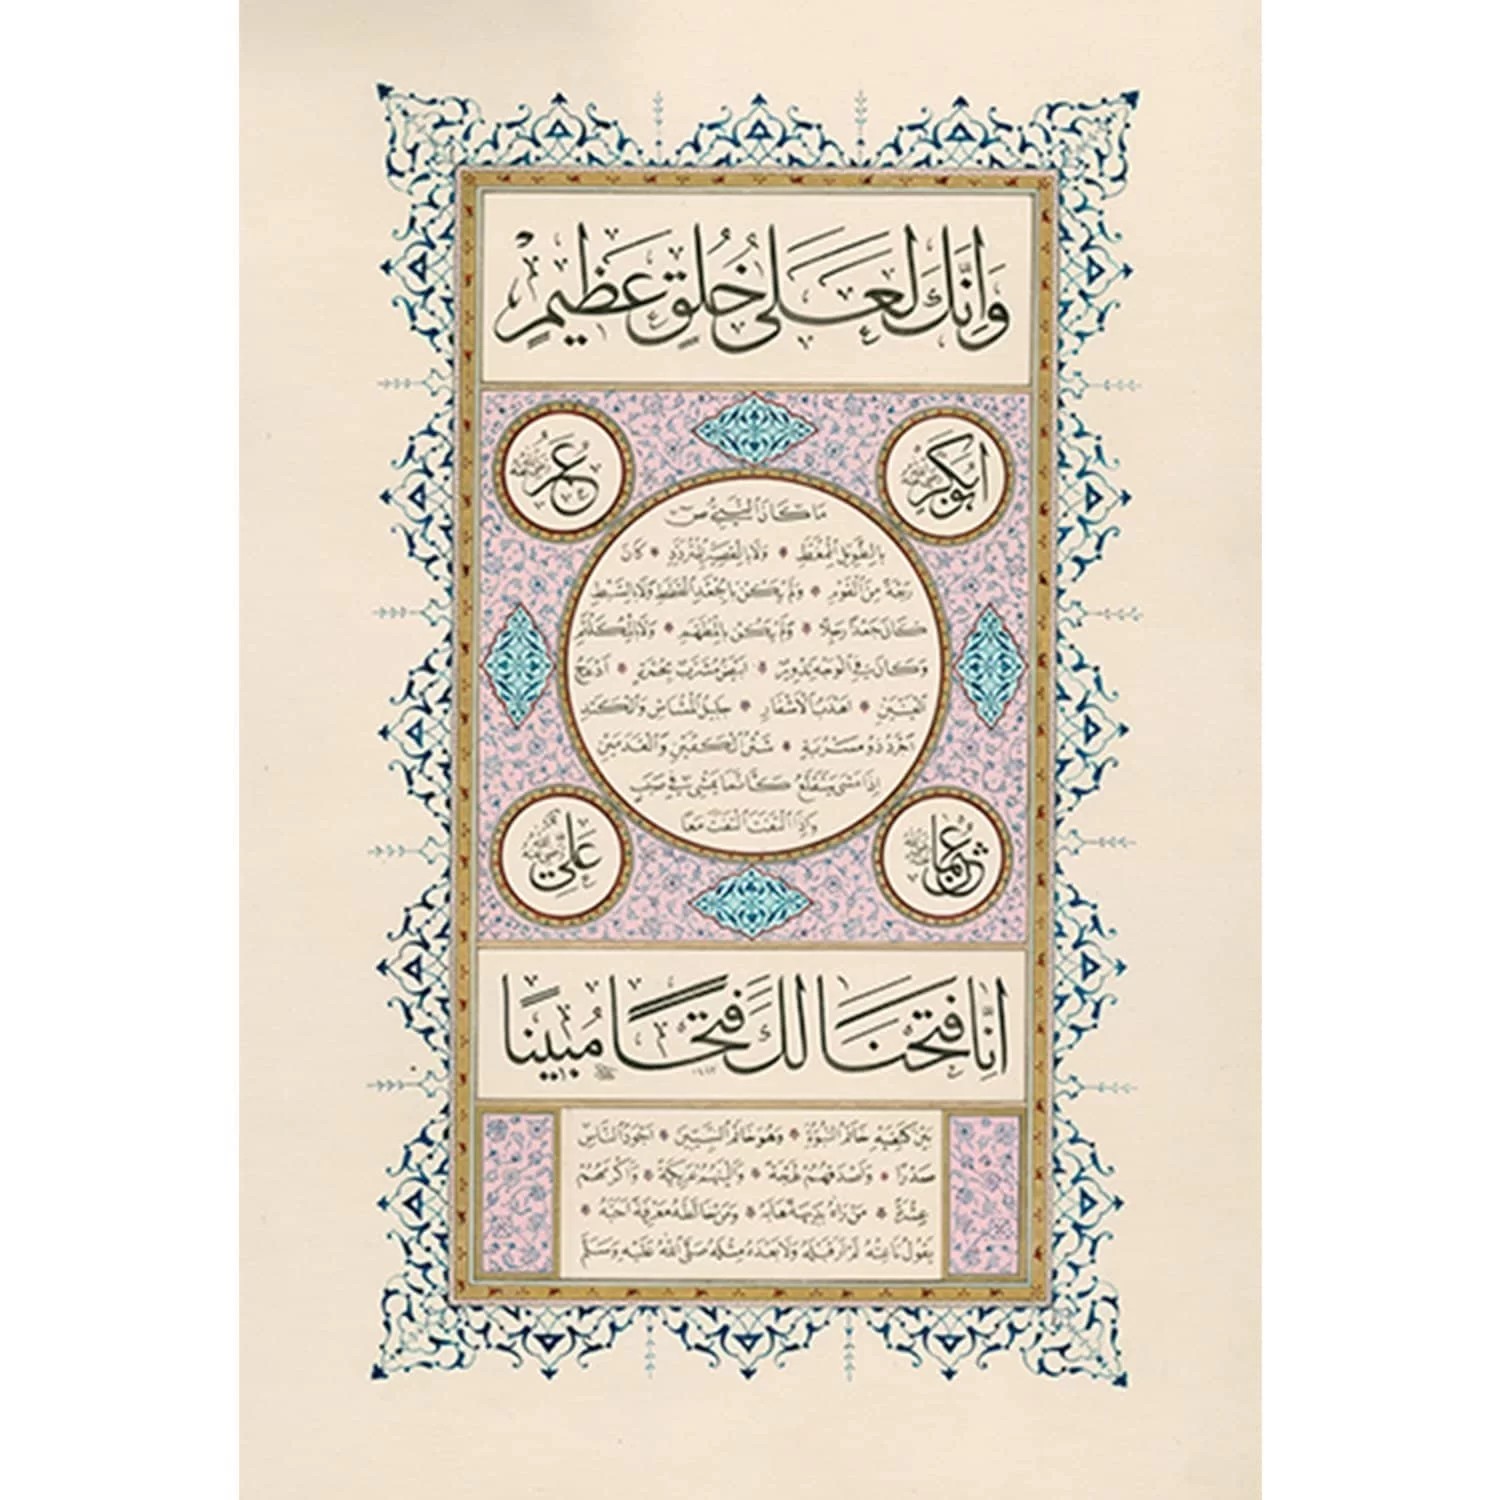 وَإِنَّكَ لَعَلَى خُلُقٍ عَظِيمٍ
ابُوبَكَرٍ رضي الله عنه
عُمَرُ رضي الله عنه
مَا كَانَ النَّبِيُّ ص
بِالطَّوِيلِ الْمُمَّغِطِ * وَلَا بِالْقَصِيرِ الْمُتَرَدِّدِ * كَانَ
رَبْعَةً مِنَ الْقَوْمِ * وَلَمْ يَكُنْ بِالْجَعْدِ الْقَطَطِ وَلَا بِالسَّبِطِ
كَانَ جَعْدًا رَجِلًا * وَلَمْ يَكُنْ بِالْمُطَهَّمِ * وَلَا بِالْمُكَلْثَمِ
وَكَانَ فِي الْوَجْهِ تَدْوِيرٌ * اَبْيَضُ مُشْرَبٌ بِحُمْرَةٍ * اَدْعَجُ
الْعَيْنَيْنِ * اَهْدَبُ الْأَشْفَارِ * جَلِيلُ الْمُشَاشِ وَالْكَتَدِ
اَجْرَدُ ذُو مَسْرُبَةٍ * شَثْنُ الْكَفَّيْنِ وَالْقَدَمَيْنِ
اِذَا مَشَى يَتَقَلَّعُ كَأَنَّمَا يَمْشِي فِي صَبَبٍ
وَاِذَا الْتَفَتَ الْتَفَتَ مَعًا
عُثْمَانُ رضي الله عنه
عَلِيٌّ رضي الله عنه
اِنَّا فَتَحْنَا لَكَ فَتْحًا مُبِينًا
بَيْنَ كَتِفَيْهِ خَاتَمُ النُّبُوَّةِ * وَهُوَ خَاتَمُ النَّبِيِّينَ * اَجْوَدُ النَّاسِ
صَدْرًا * وَاَصْدَقُهُمْ لَهْجَةً * وَاَلْيَنُهُمْ عَرِيكَةً * وَاَكْرَمُهُمْ
عِشْرَةً * مَنْ رَاٰهُ بَدِيهَةً هَابَهُ * وَمَنْ خَالَطَهُ مَعْرِفَةً اَحَبَّهُ *
يَقُولُ نَاعِتُهُ لَمْ اَرَ قَبْلَهُ وَلَا بَعْدَهُ مِثْلَهُ صَلَّى اللهُ عَلَيْهِ وَسَلَّمَ